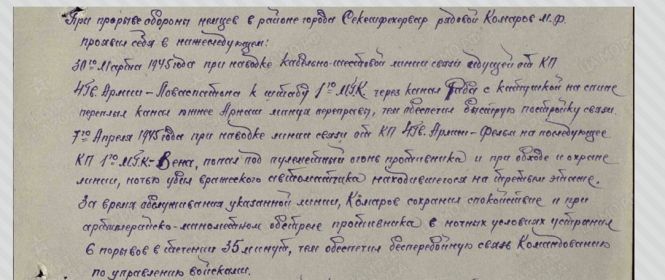 При прорыве обороны немцев в районе города Секешфехервар рядовой Комаров М.Ф.
проявил себя в нижеследующем:
30го Марта 1945 года при наводке кабельно-шестовой линии связи идущей от КП
4 Гв. Армии - Ловаспатона к штабу 1го МГК через канал Раба с катушкой на спине
переплыл канал южнее Арпаш минуя переправу, тем обеспечил быструю постройку связи.
7го Апреля 1945 года при наводке линии связи от КП 4 Гв. Армии - Фельм на последующее
КП 1го МГК - Вена, попал под пулеметный огонь противника и при обходе и охране
линии, ночью убил вражеского автоматчика находившегося на третьем этаже.
За время обслуживания указанной линии, Комаров сохранил спокойствие и при
артиллерийско-минометном обстреле противника в ночных условиях устранил
6 порывов в течении 35 минут, тем обеспечил бесперебойную связь Командованию
по управлению войсками.